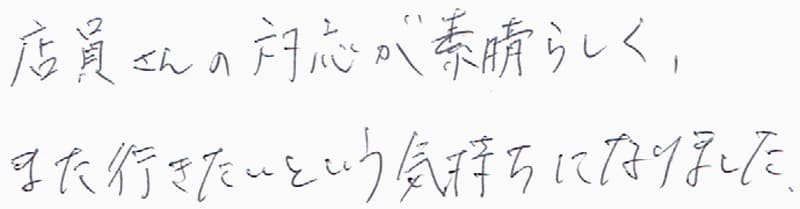 店員さんの対応が素晴らしく、
また行きたいという気持ちになりました、